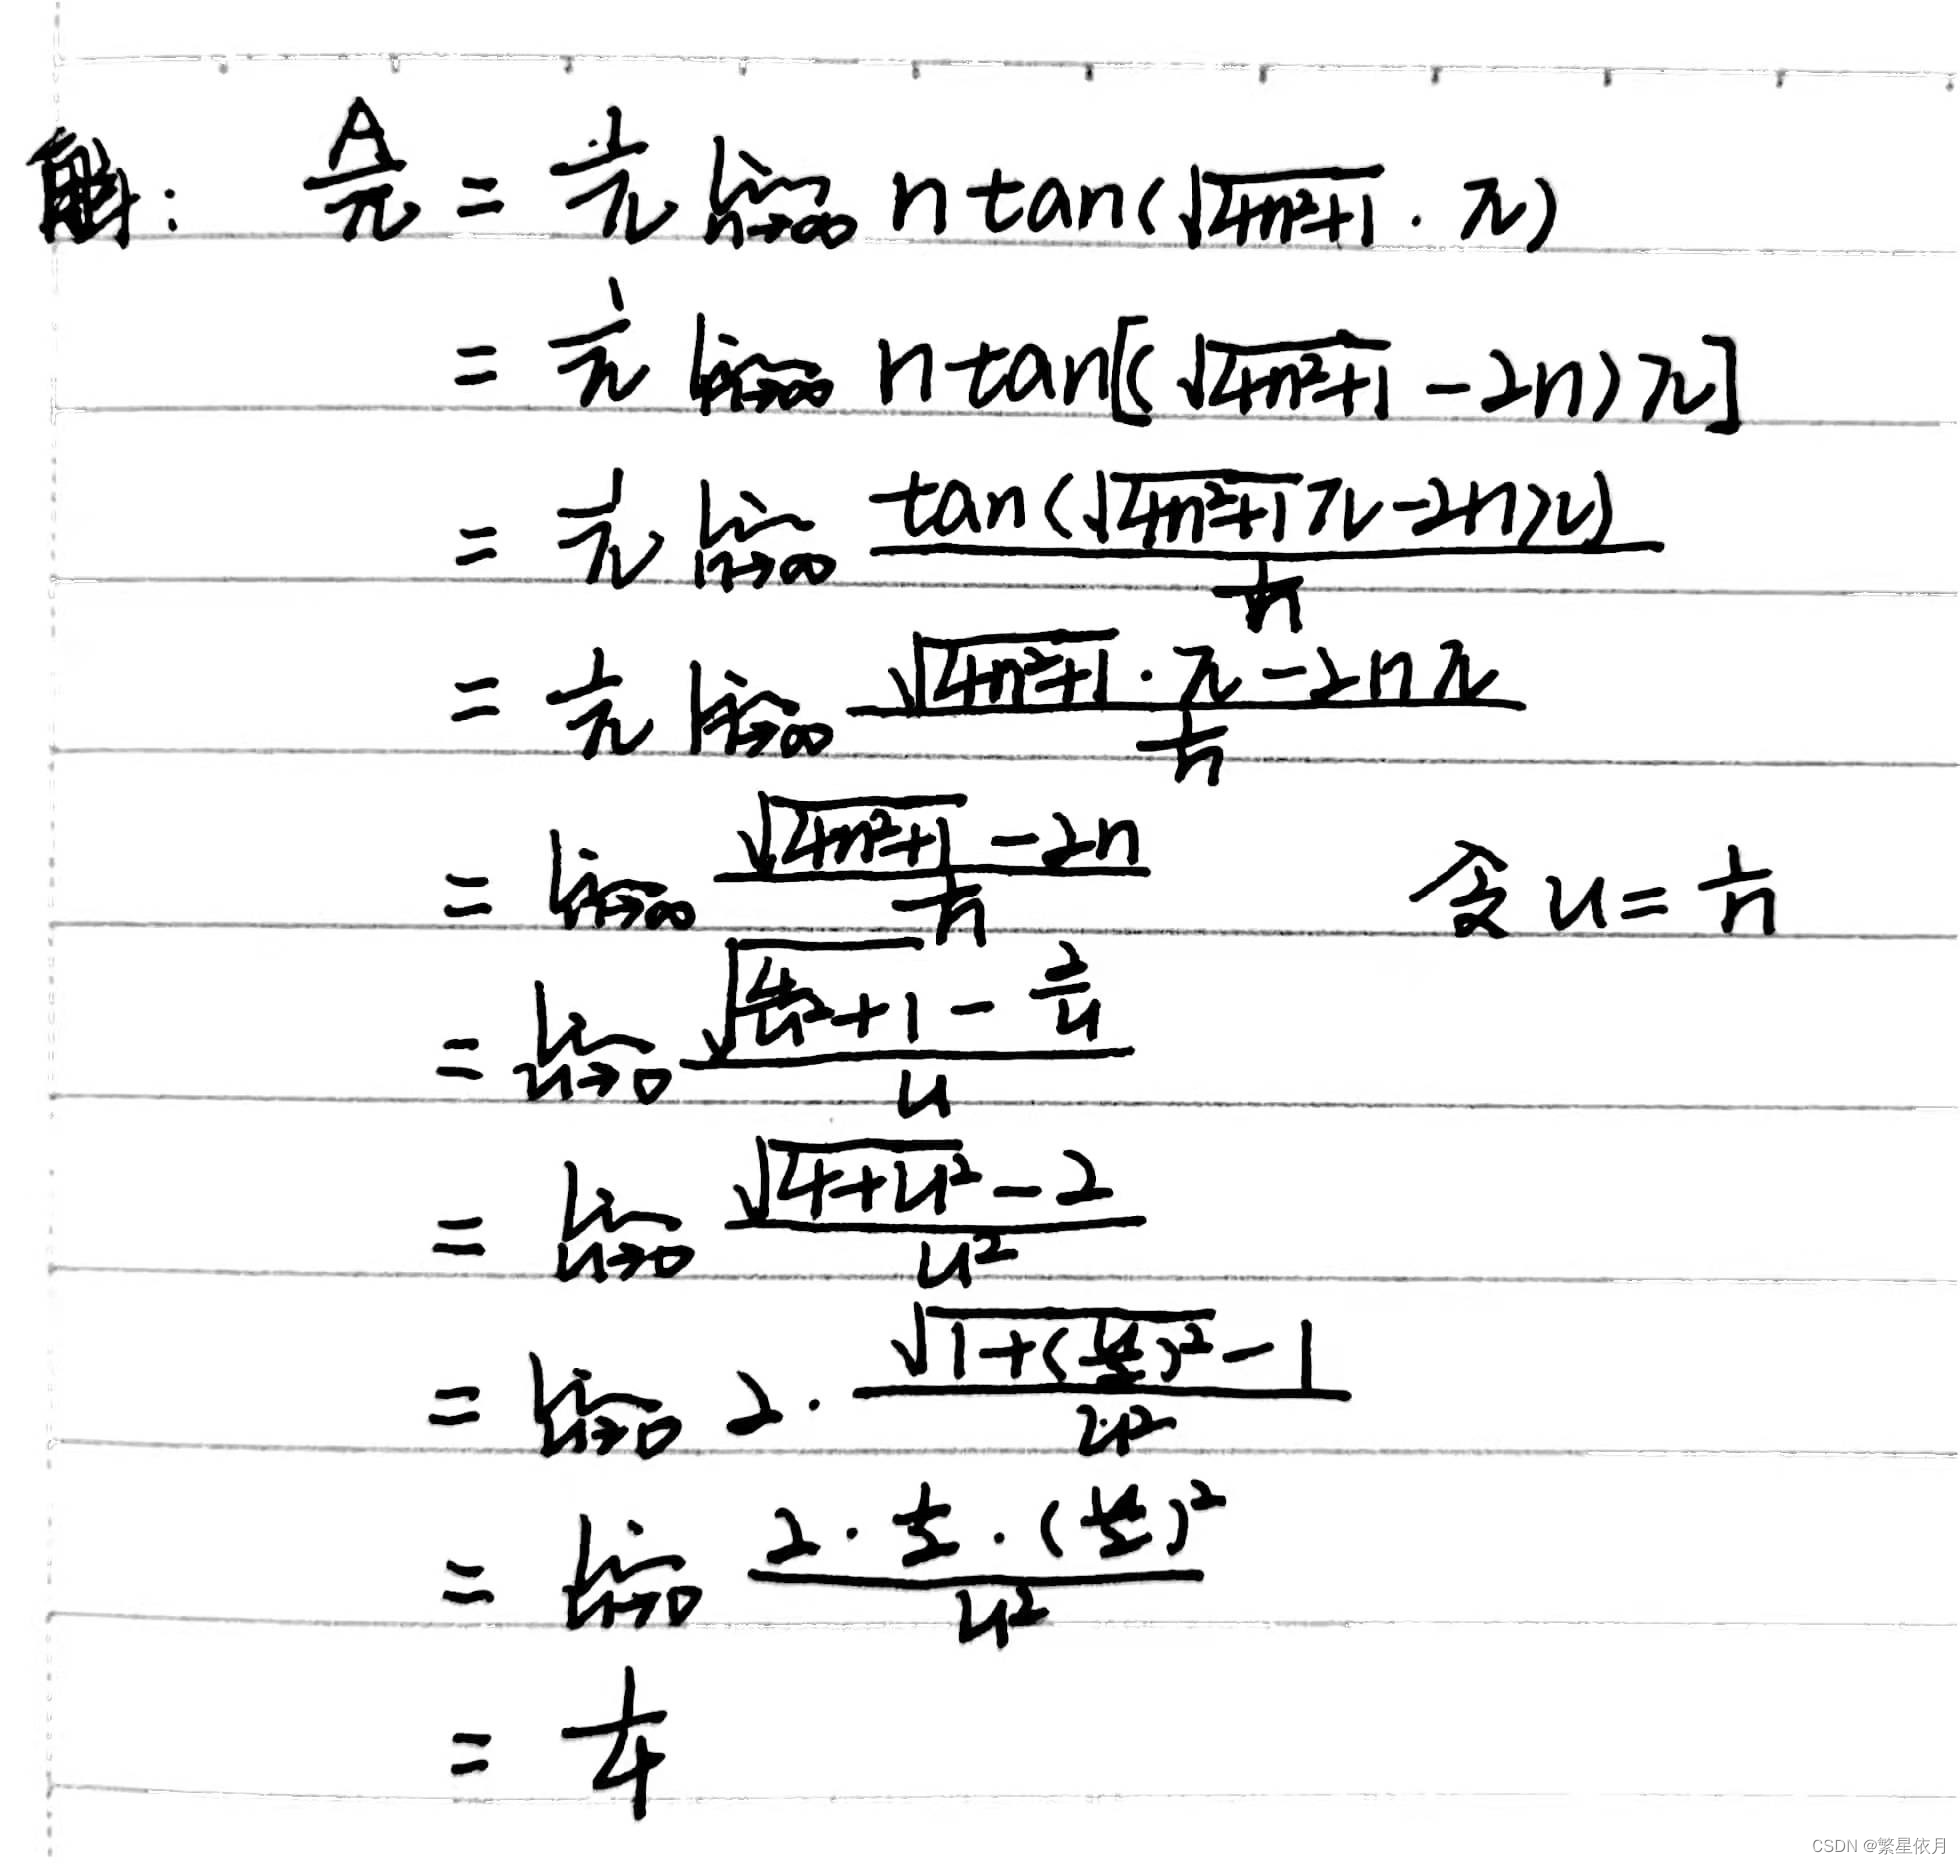 解: A/π = 1/π lim n→∞ n tan(√(4n²+1) · π)
= 1/π lim n→∞ n tan[(√(4n²+1) - 2n)π]
= 1/π lim n→∞ tan(√(4n²+1) π - 2nπ) / (1/n)
= 1/π lim n→∞ (√(4n²+1) · π - 2nπ) / (1/n)
= lim n→∞ (√(4n²+1) - 2n) / (1/n) 令 u = 1/n
= lim u→0 (√(4/u²+1) - 2/u) / u
= lim u→0 (√(4+u²) - 2) / u²
= lim u→0 2 · (√(1+(u/2)²) - 1) / u²
= lim u→0 (2 · 1/2 · (u/2)²) / u²
= 1/4
CSDN @繁星依月